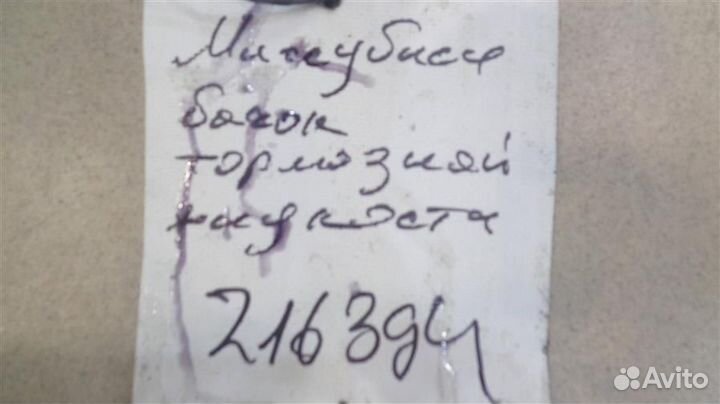 Мицубиси
бачок
тормозной
жидкости
2163дч
Avito